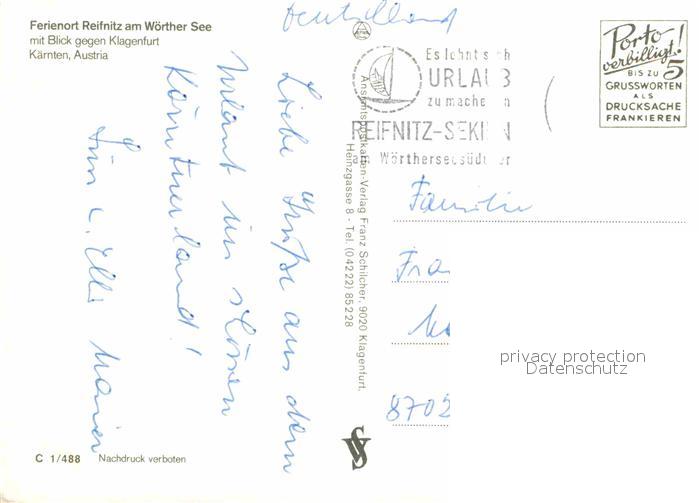 Ferienort Reifnitz am Wörther See
mit Blick gegen Klagenfurt
Kärnten, Austria
Deutschland
Es lohnt sich
URLAUB
zu machen in
REIFNITZ-SEKIRN
am Wörtherseesüdufer
Porto
verbilligt!
BIS ZU 5
GRUSSWORTEN
ALS
DRUCKSACHE
FRANKIEREN
Liebe Grüße aus dem
Urlaub im schönen
Kärntnerland!
u. Elli Maier
Ansichtskarten-Verlag Franz Schilcher, 9020 Klagenfurt,
Heinzgasse 8 - Tel. (04222) 85228
Familie
Fra
8702
privacy protection
Datenschutz
C 1/488 Nachdruck verboten